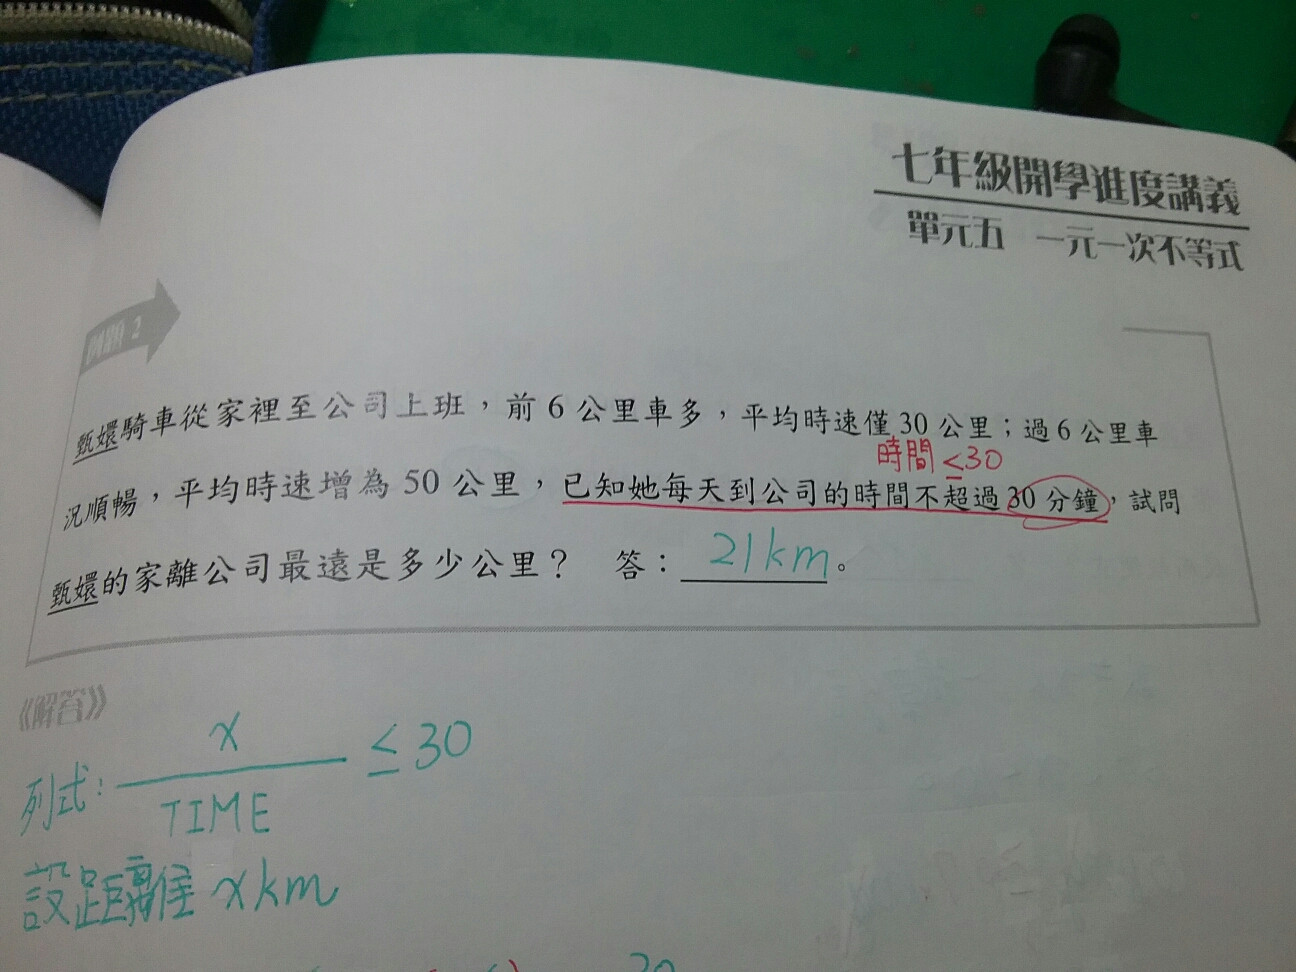 七年級開學進度講義
單元五 一元一次不等式
例題 2
甄嬛騎車從家裡至公司上班，前 6 公里車多，平均時速僅 30 公里；過 6 公里車
時間 ≤30
況順暢，平均時速增為 50 公里，已知她每天到公司的時間不超過 30 分鐘，試問
甄嬛的家離公司最遠是多少公里？ 答： 21km 。
《解答》
列式： x / TIME ≤ 30
設距離 x km
30